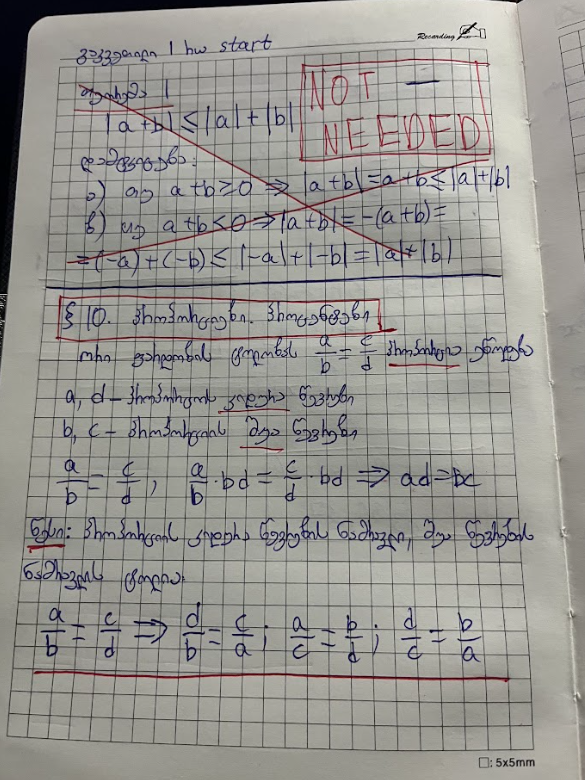 Recording
გაკვეთილი 1 hw start
თეორემა 1
NOT —
NEEDED
|a+b| ≤ |a|+|b|
დამტკიცება:
ა) თუ a+b≥0 ⇒ |a+b|=a+b≤|a|+|b|
ბ) თუ a+b<0 ⇒ |a+b| = -(a+b)=
=(-a)+(-b)≤ |-a|+|-b|=|a|+|b|
§ 10. პროპორციები. პროცენტები
ორი ფარდობის ტოლობას a/b = c/d პროპორცია ეწოდება
a, d – პროპორციის კიდურა წევრები
b, c – პროპორციის შუა წევრები
a/b = c/d ; a/b · bd = c/d · bd ⇒ ad=bc
წესი: პროპორციის კიდურა წევრების ნამრავლი, შუა წევრების
ნამრავლის ტოლია.
a/b = c/d ⇒ d/b = c/a ; a/c = b/d ; d/c = b/a
□: 5x5mm